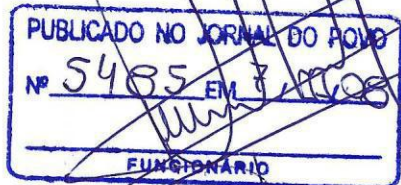 PUBLICADO NO JORNAL DO POVO
Nº 5485 EM 7/11/08
FUNCIONÁRIO